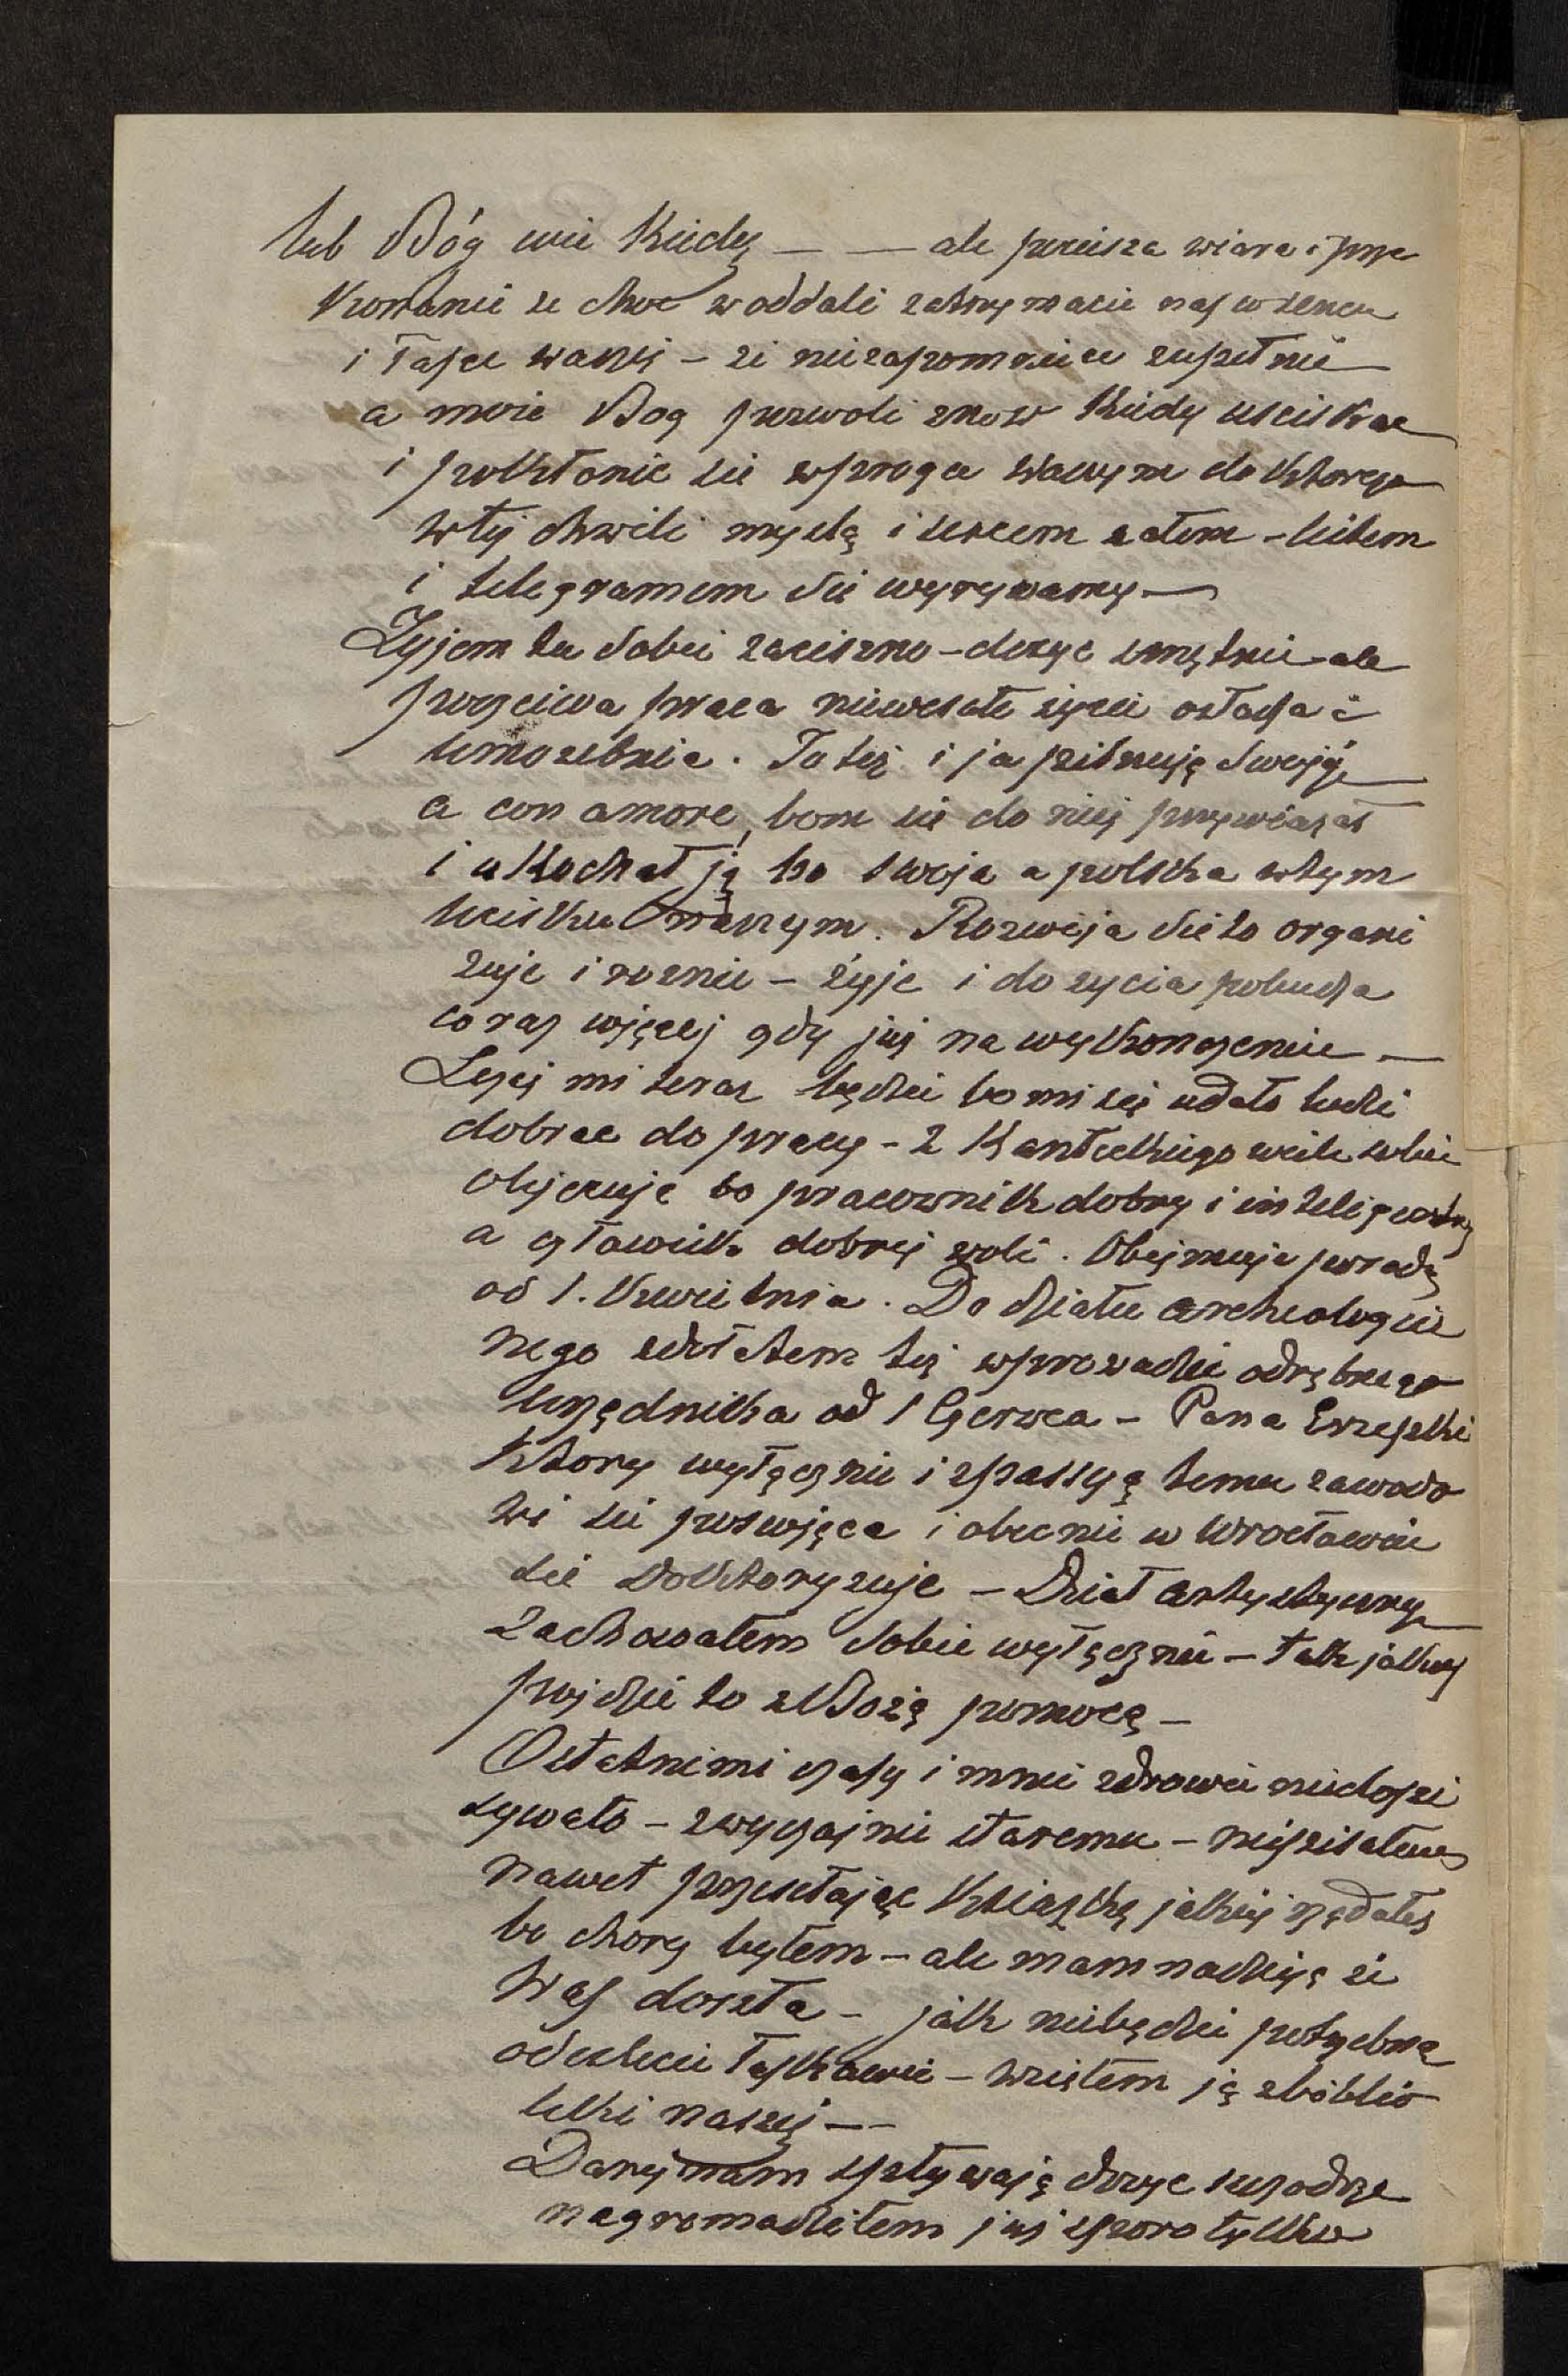 lub Bóg wie kiedy — — ale pociesza wiara i prze
konanie ze choc w oddali zatrzymacie nas w sercu
i łasce waszej – ze niezapomnicie zupełnie
a moze Bog pozwoli znow kiedy usciskac
i pokłonic sie w progu waszym do ktorego
w tej chwili myslą i sercem całem – listem
i telegramem sie wyrywamy —
Zyjem tu sobie zaciszno – dosyc smętnie – ale
poczciwa praca niewesołe zycie osładza i
umozebnia. To tez i ja pilnuję swojéj
a con amore, bom sie do niej przywiązał
i ukochał ją bo swoja a polska w tym
ucisku naszym. Rozwija sie to organi
zuje i rosnie – żyje i do zycia pobudza
coraz więcej gdy juz na wykonczeniu —
Lzej mi teraz będzie bo mi się udało ludzi
dobrac do pracy – z Kanteckiego wiele sobie
obiecuje bo pracownik dobry i inteligentny
a człowiek dobrej woli. Obejmuje posadę
od 1. Kwietnia. Do działu archeologicz
nego zdołałem tez wprowadzic odrębnego
urzędnika od 1 Czerwca – Pana Erzepki
ktory wyłącznie i z passyą temu zawodo
wi sie poswięca i obecnie w Wrocławiu
sie doktoryzuje – Dział artystyczny
zachowałem sobie wyłącznie – tak jakos
pojdzie to z Bożą pomocą –
Ostatnimi czasy i mnie zdrowie niedopi
sywało – zwyczajnie staremu – niepisałem
nawet przesyłając Książkę jakiej ządałes
bo chory byłem – ale mam nadzieję ze
Was doszła – jak niebędzie potrzebną
odeslecie łaskawie – wziąłem ją z biblio
teki naszej ——
Dary nam spływają dosyc szczodrze
nagromadziłem juz sporo tylko